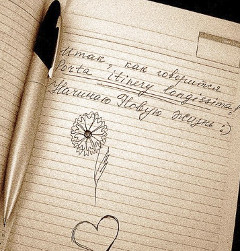 Итак, как говорится
Porta itineri longissima!
Начинаю Новую жизнь :)